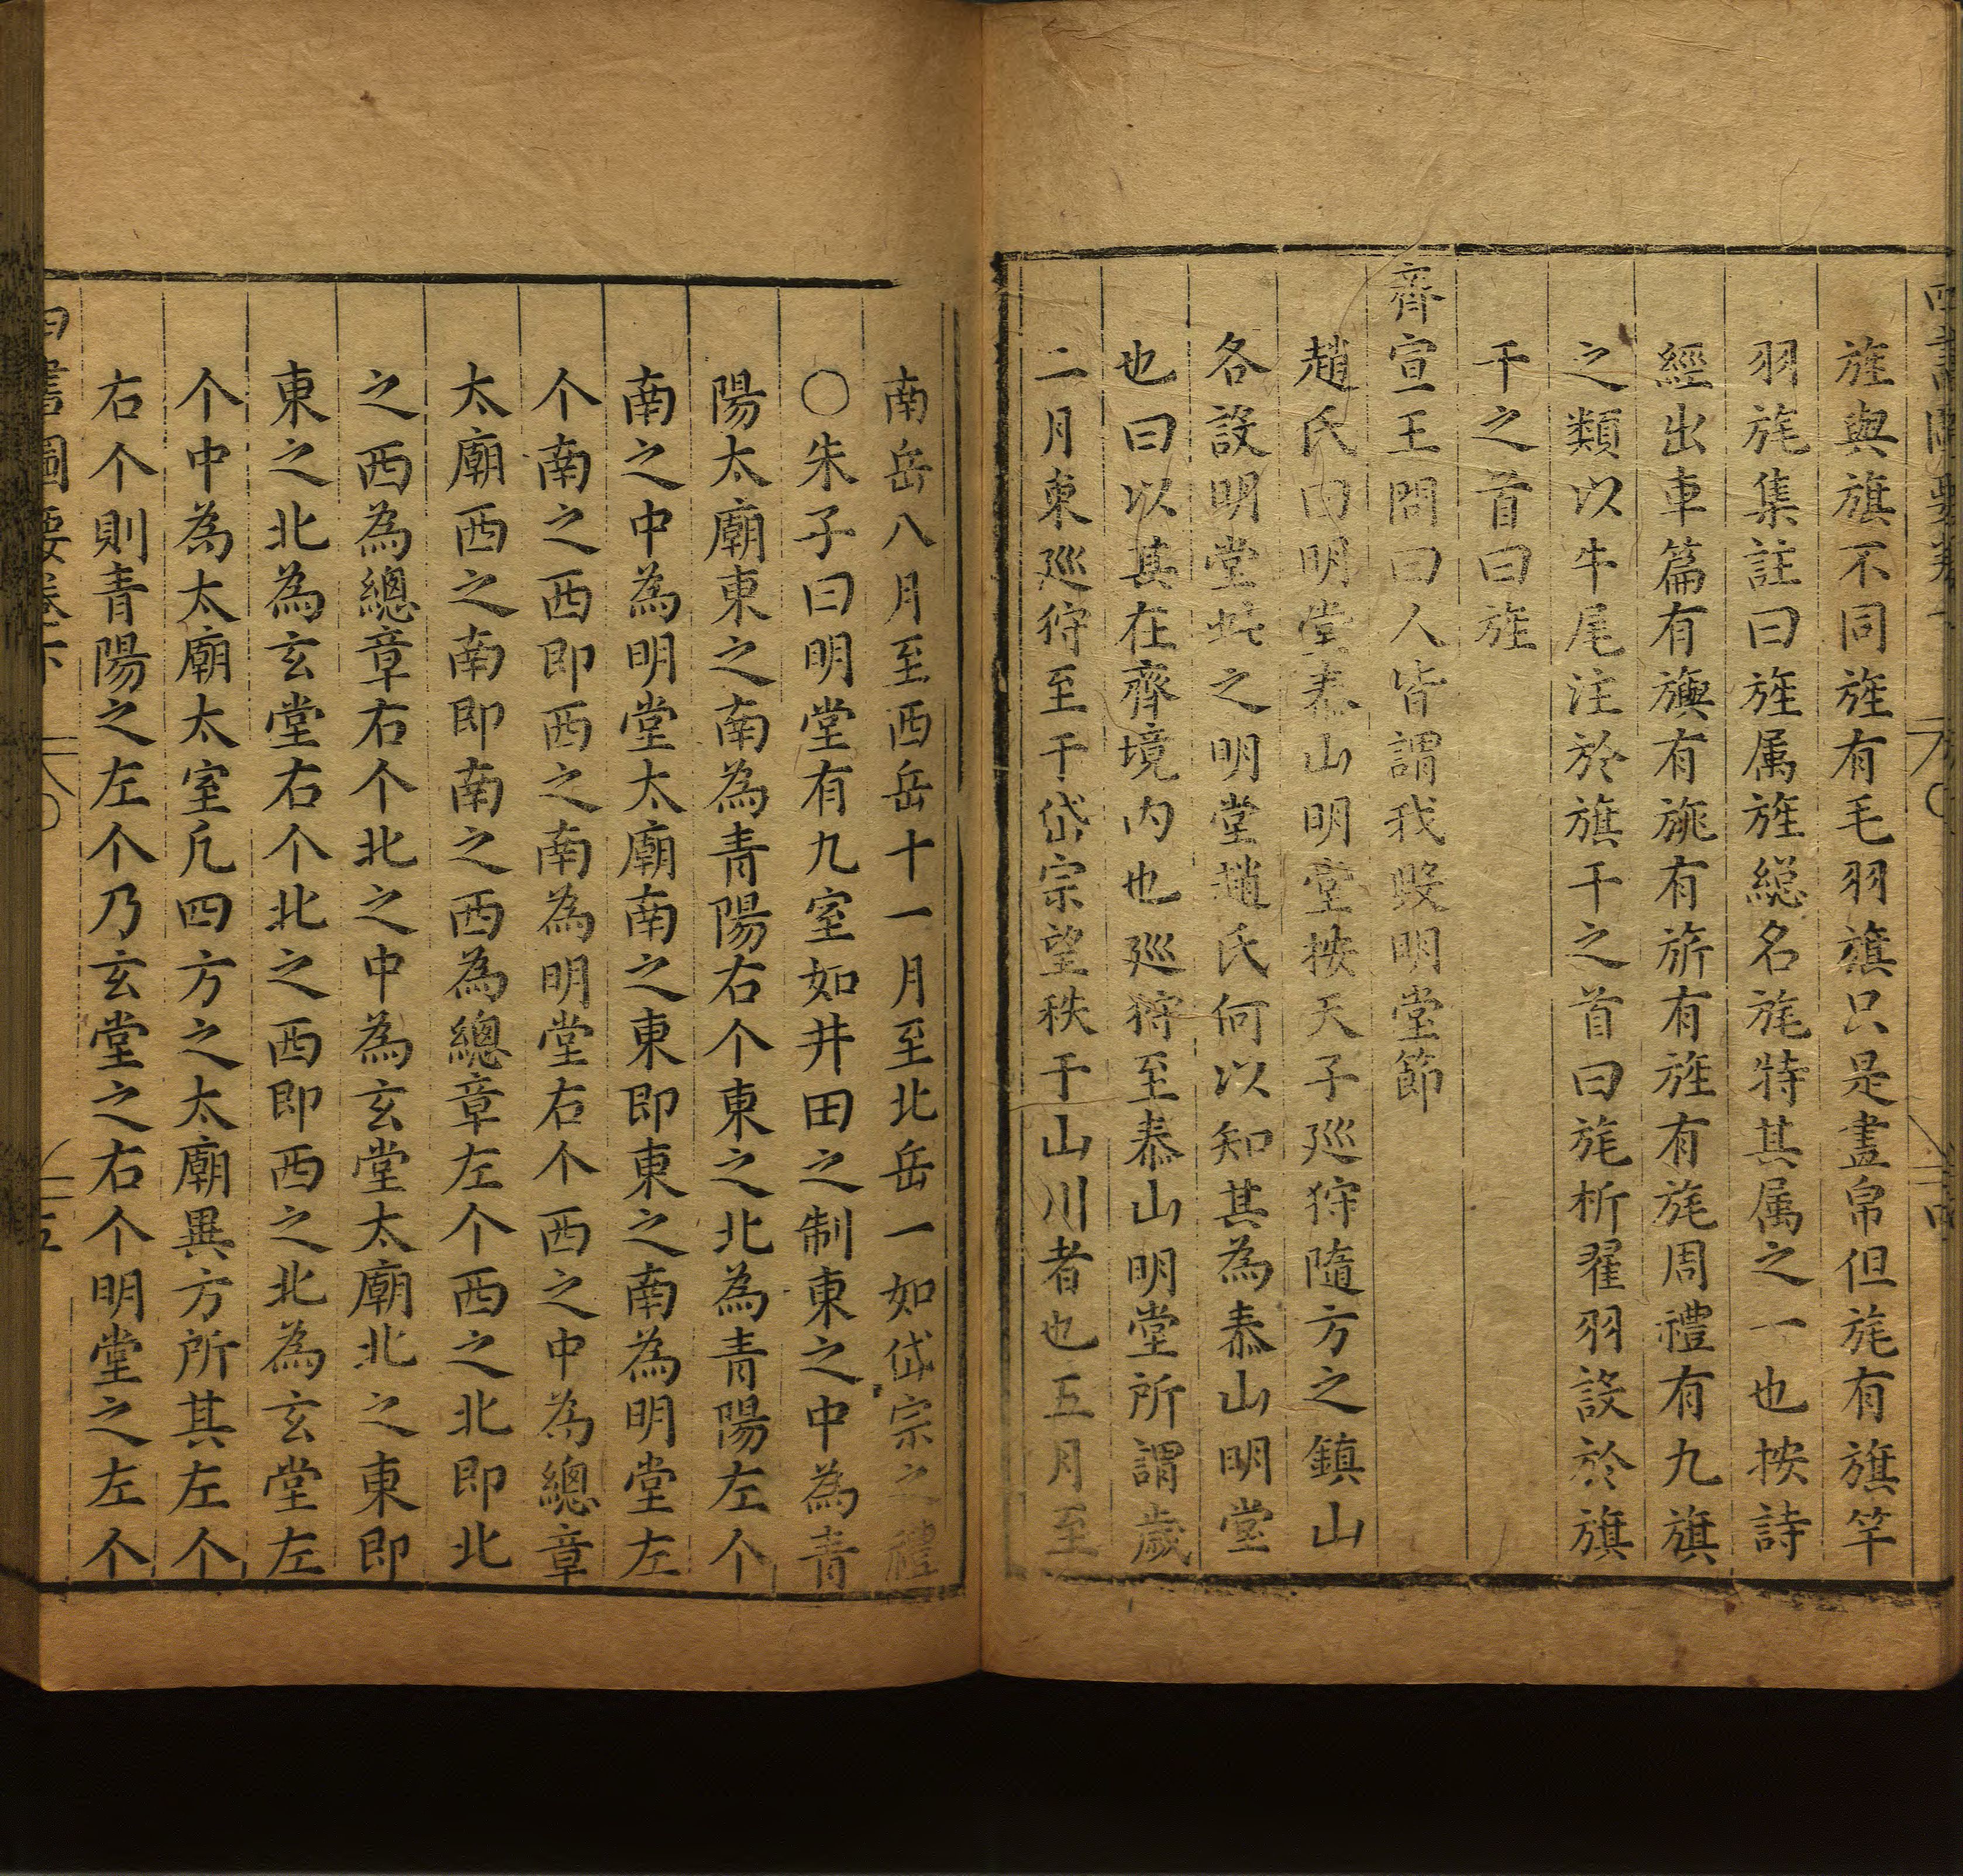 旌與旗不同旌有毛羽旗只是畫帛但旄有旗竿
羽旄集註曰旌属旌総名旄特其属之一也按詩
經出車篇有旟有旐有旂有旌有旄周禮有九旗
之類以牛尾注於旗干之首曰旄析翟羽設於旗
干之首曰旌
齊宣王問曰人皆謂我毁明堂節
趙氏曰明堂泰山明堂按天子廵狩隨方之鎮山
各設明堂此之明堂趙氏何以知其為泰山明堂
也曰以其在齊境内也廵狩至泰山明堂所謂歲
二月東廵狩至于岱宗望秩于山川者也五月至
南岳八月至西岳十一月至北岳一如岱宗之禮
○朱子曰明堂有九室如井田之制東之中為青
陽太廟東之南為青陽右个東之北為青陽左个
南之中為明堂太廟南之東即東之南為明堂左
个南之西即西之南為明堂右个西之中為總章
太廟西之南即南之西為總章左个西之北即北
之西為總章右个北之中為玄堂太廟北之東即
東之北為玄堂右个北之西即西之北為玄堂左
个中為太廟太室凢四方之太廟異方所其左个
右个則青陽之左个乃玄堂之右个明堂之左个
書圖要卷下